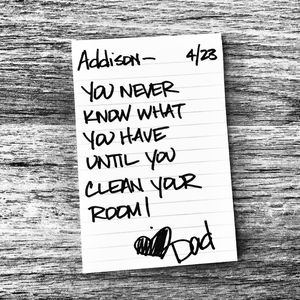 Addison— 4/23
YOU NEVER
KNOW WHAT
YOU HAVE
UNTIL YOU
CLEAN YOUR
ROOM!
Dad